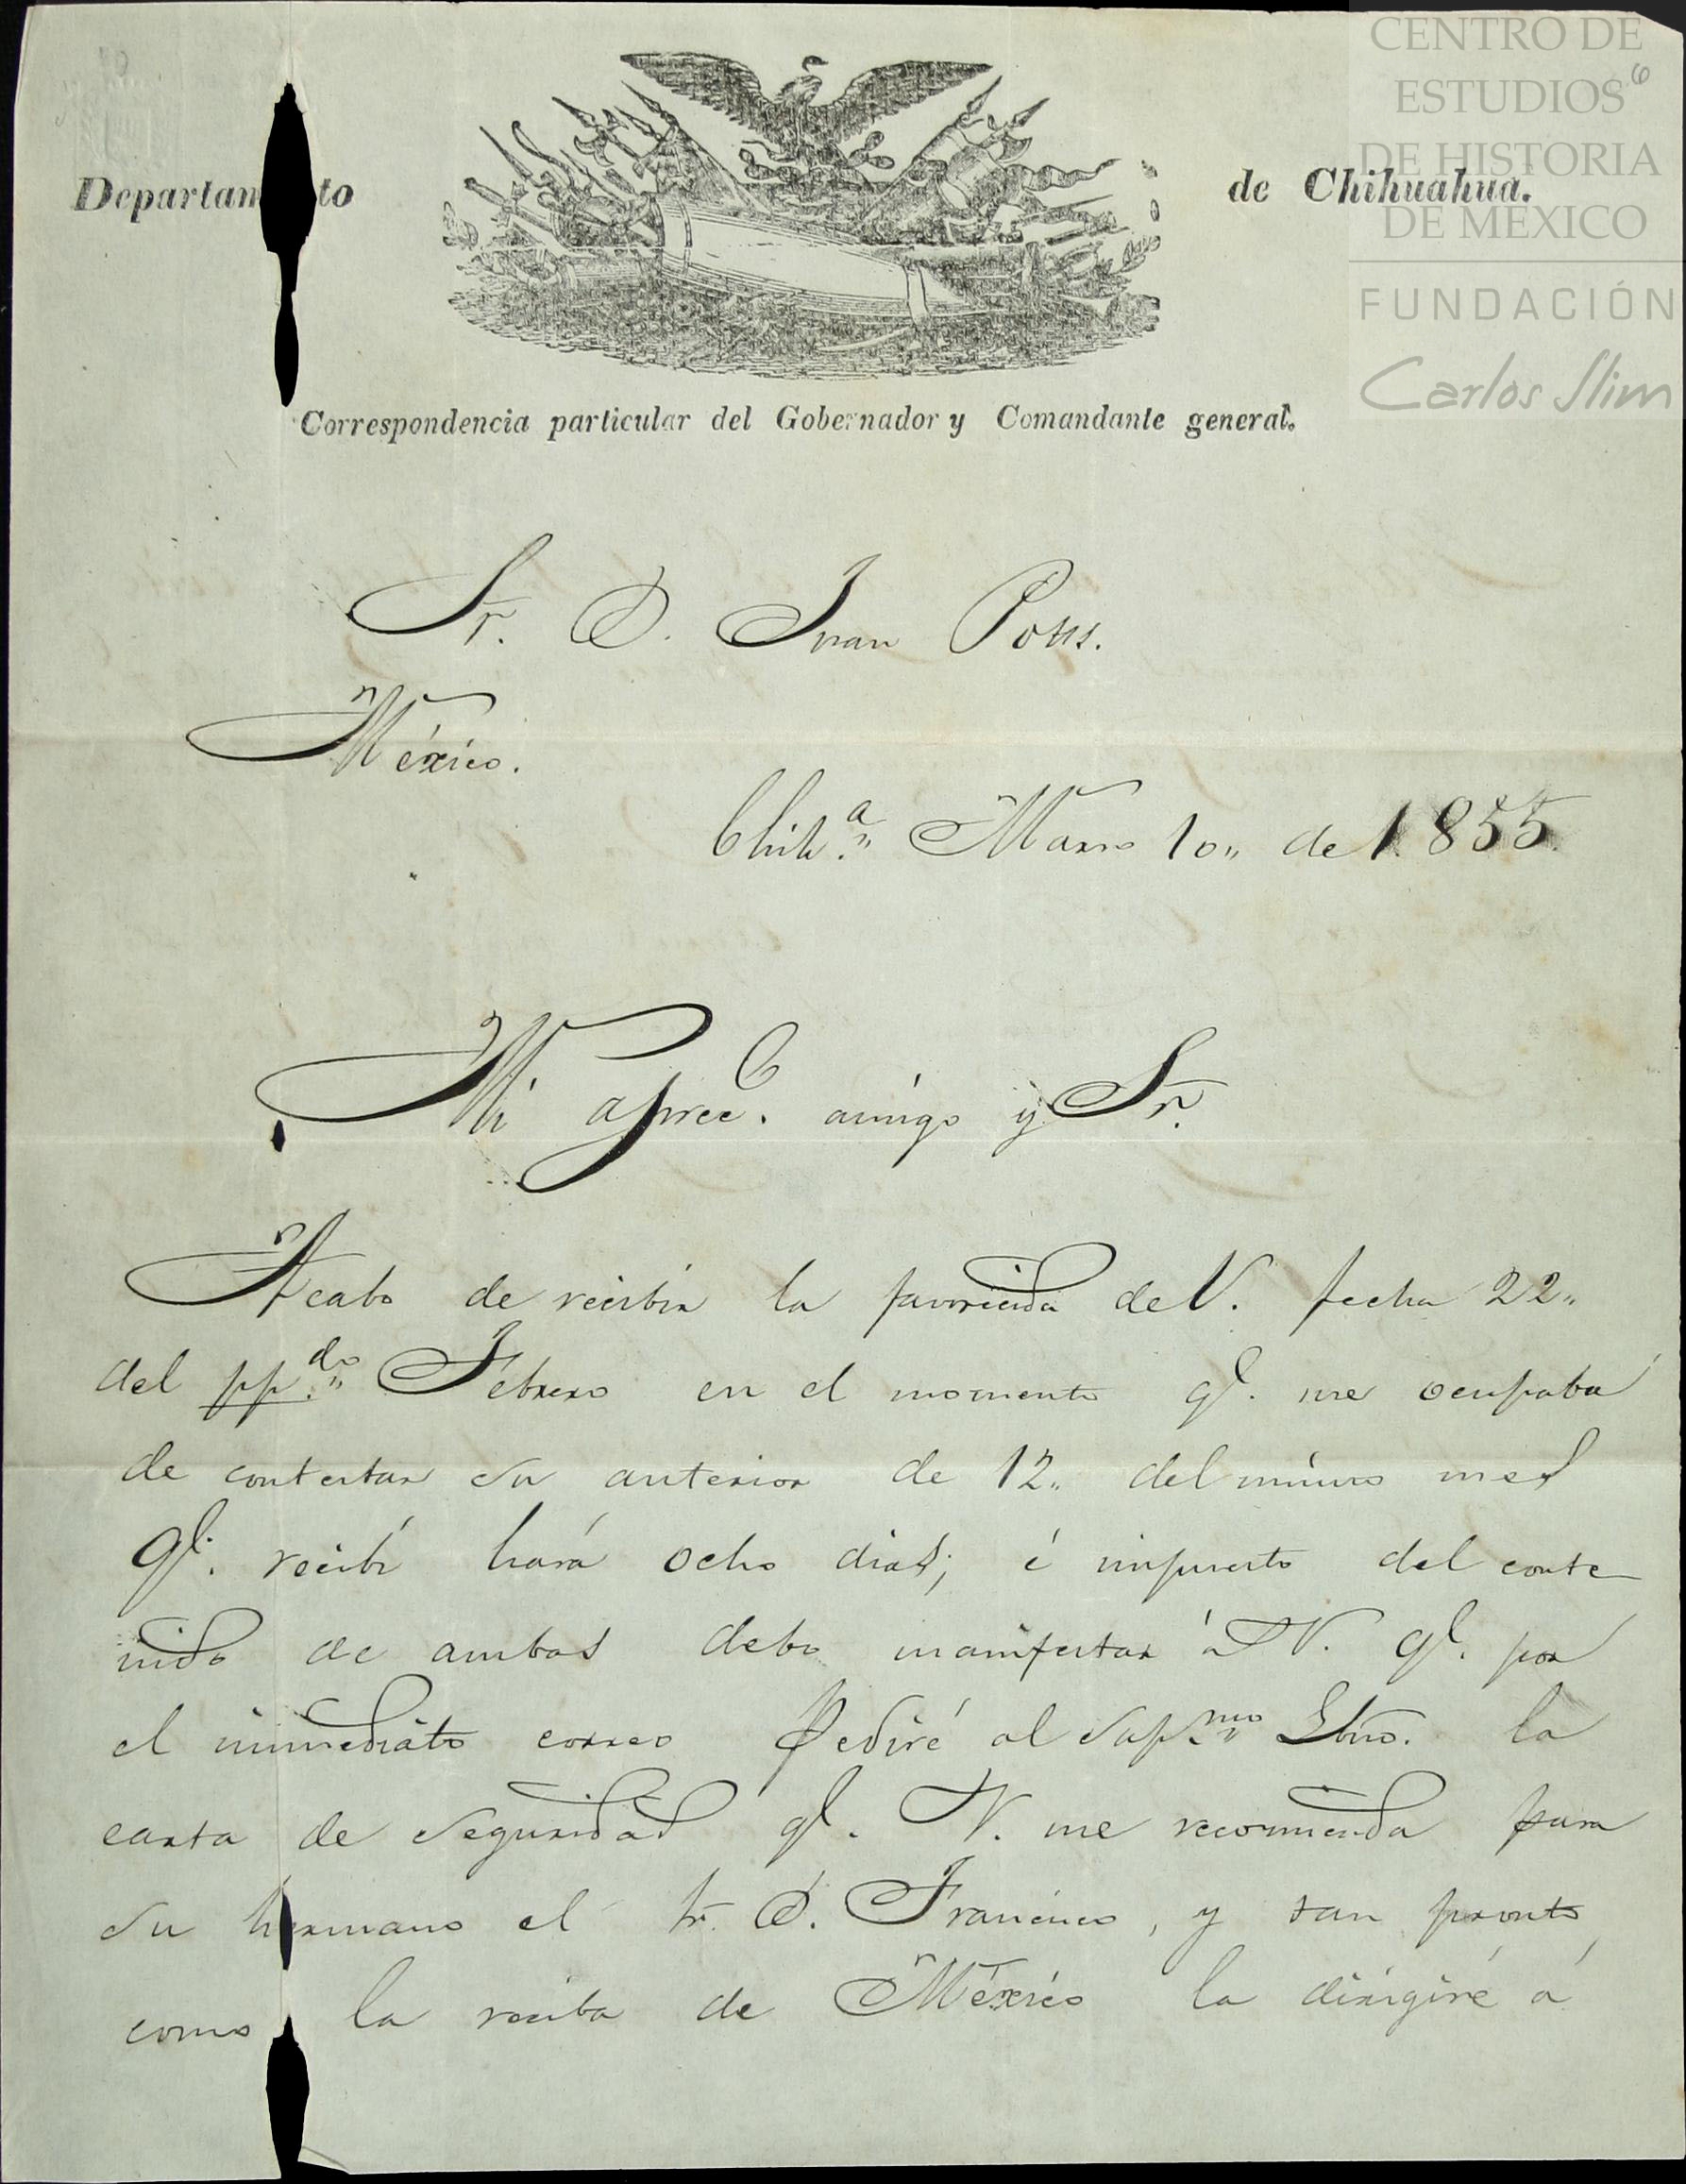 CENTRO DE
ESTUDIOS
DE HISTORIA
DE MÉXICO
FUNDACIÓN
Carlos Slim
6
Departam to de Chihuahua.
Correspondencia particular del Gobernador y Comandante general.
Sr. D. Juan Pons.
México.
Chih.a Marzo 10,, de 1855.
Mi aprec. amigo y Sr.
Acabo de recibir la favorecida de V. fecha 22,,
del pp.do Febrero en el momento q.e me ocupaba
de contestar su anterior de 12,, del mismo mes
q.e recibí hará ocho dias; é impuesto del conte
nido de ambas debo manifestar á V. q.e por
el inmediato correo pediré al Sup.mo Gbno. la
carta de seguridad q.e V. me recomienda para
su hermano el Sr. D. Francisco, y tan pronto
como la reciba de México la dirigiré á